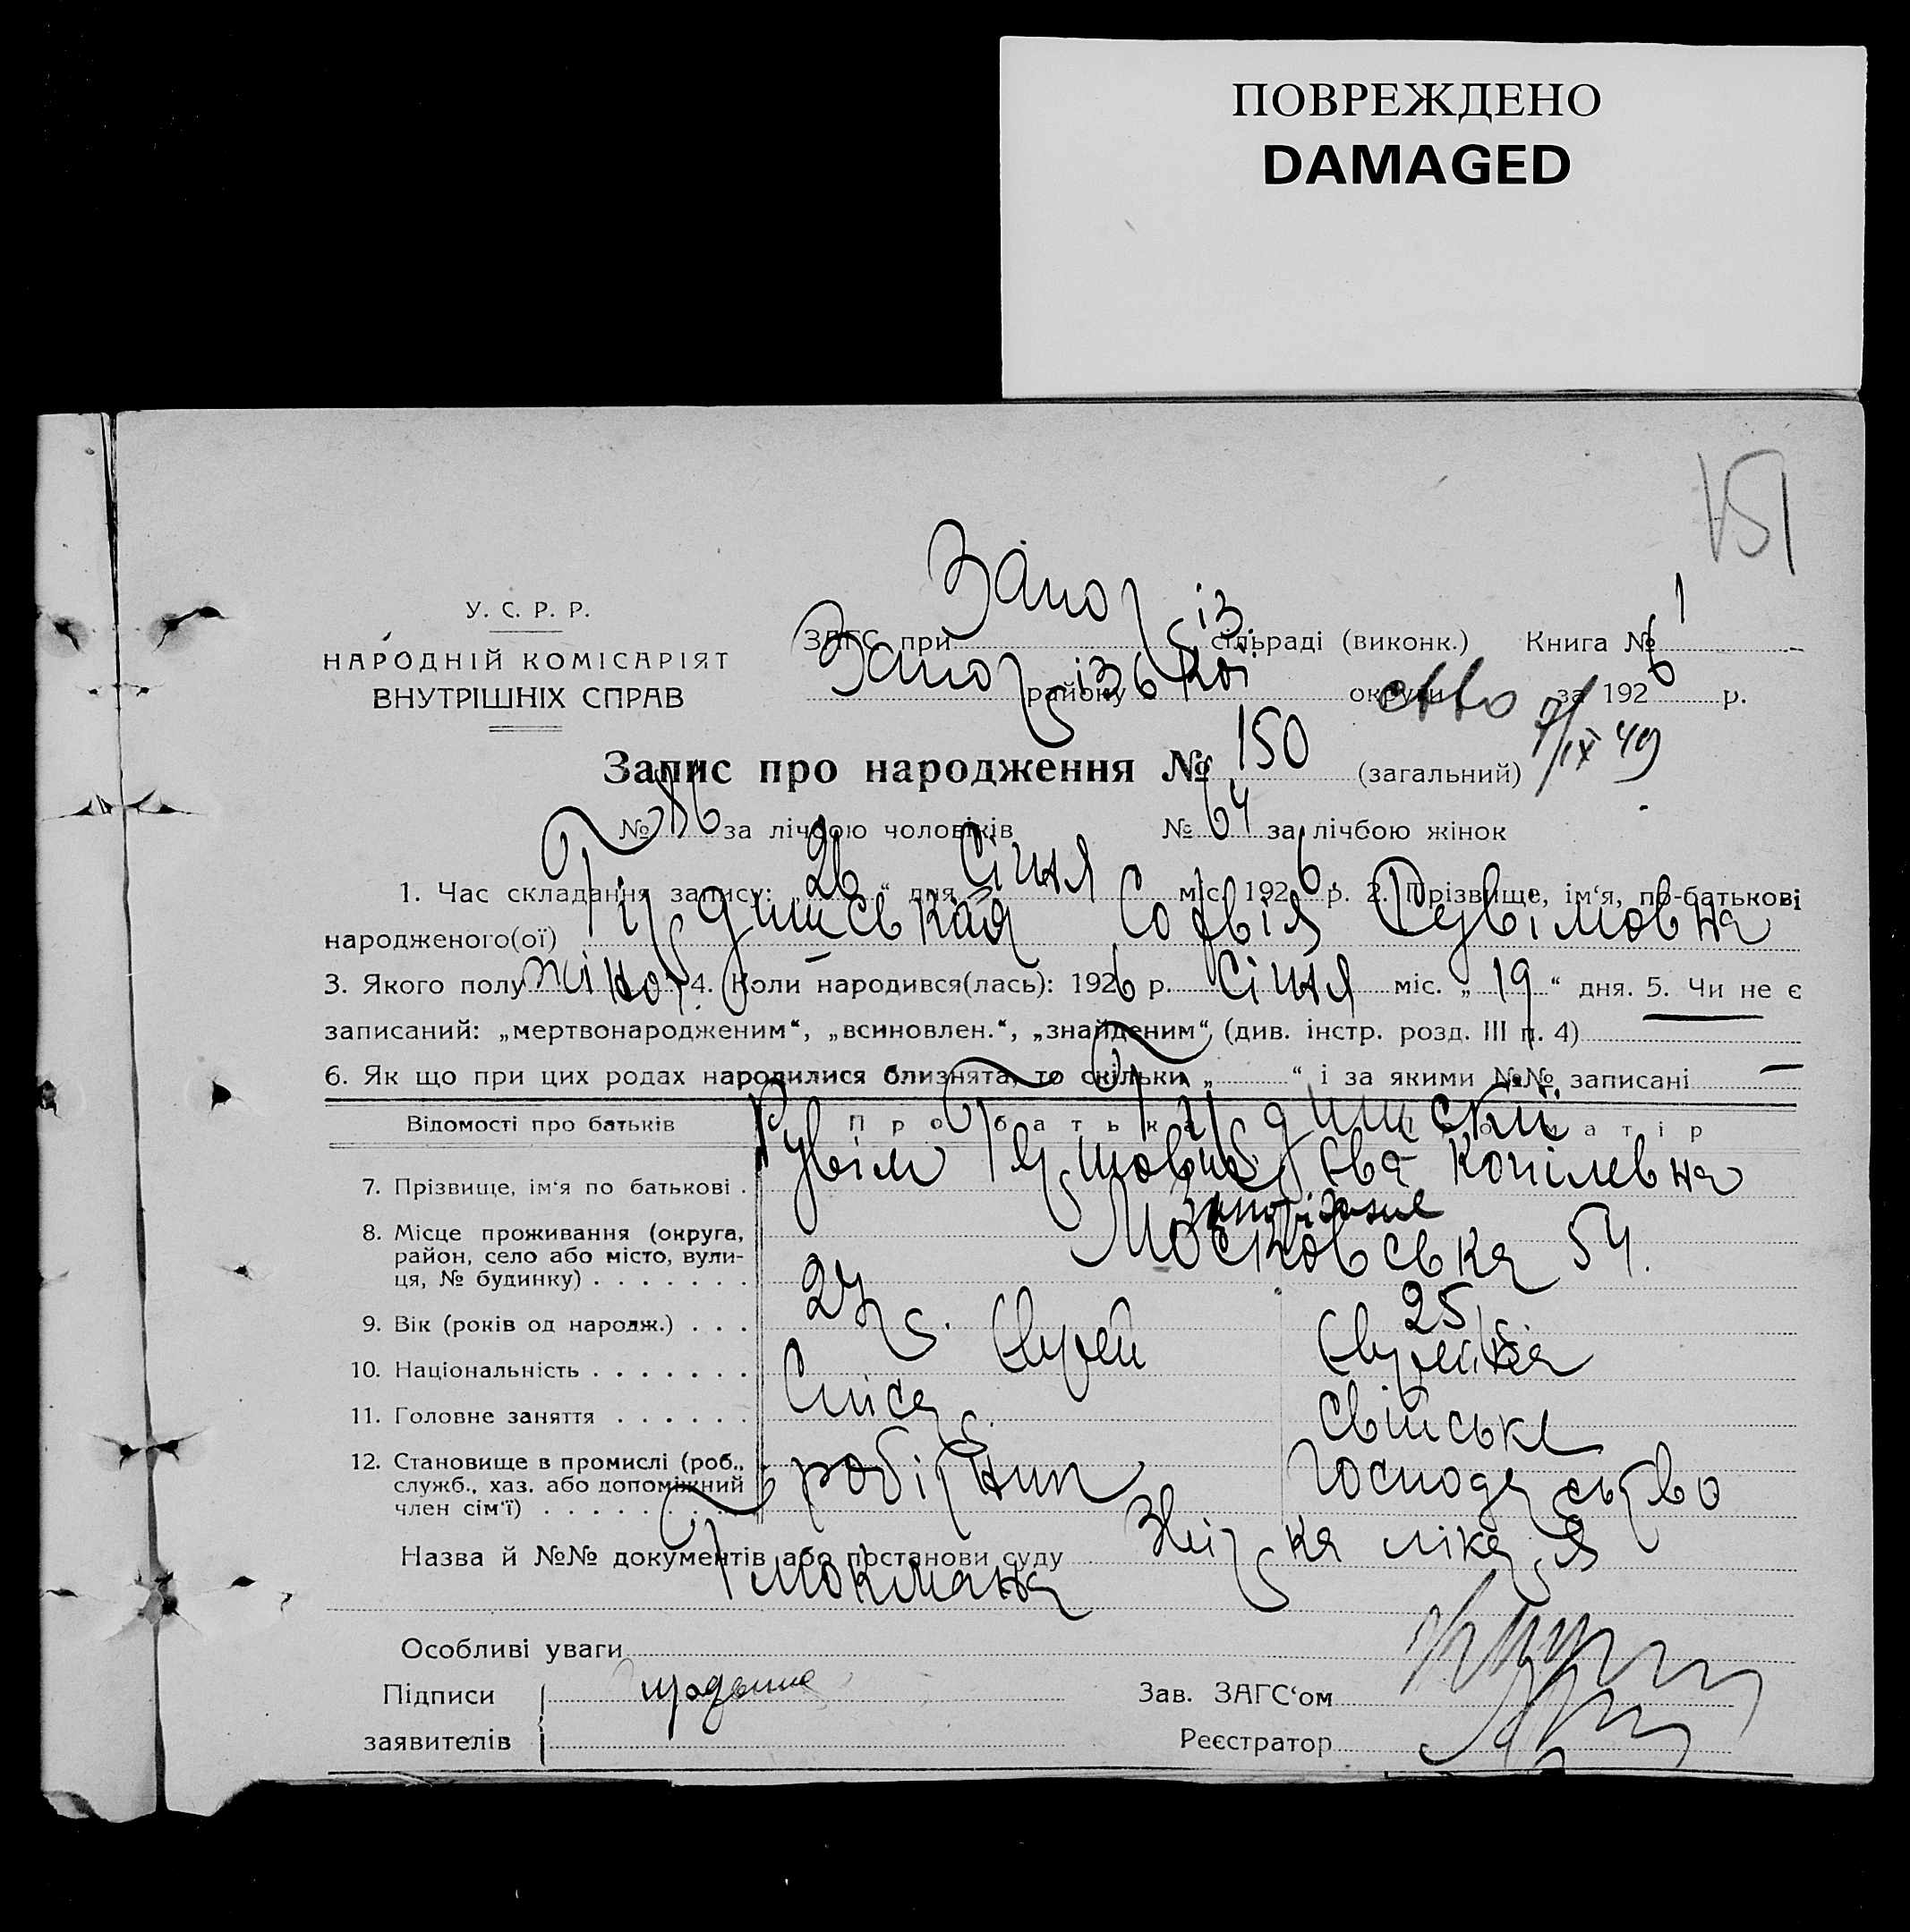 ПОВРЕЖДЕНО
DAMAGED
151
У. С. Р. Р.
НАРОДНІЙ КОМІСАРІЯТ
ВНУТРІШНІХ СПРАВ
ЗАГС при Запоріз. сільраді (виконк.) Книга № 1
Запорізької району округи за 1926 р.
7/IX 49
Запис про народження № 150 (загальний)
№ 86 за лічбою чоловіків № 64 за лічбою жінок
1. Час складання запису: „26“ дня Січня міс. 1926 р. 2. Прізвище, ім‘я, по-батькові
народженого(ої) Софвія Рувімовна
3. Якого полу жіноч. 4. Коли народився(лась): 1926 р. Січня міс. „19“ дня. 5. Чи не є
записаний: „мертвонародженим“, „всиновлен.“, „знайденим“ (див. інстр. розд. III п. 4)
6. Як що при цих родах народилися близнята, то скільки „ “ і за якими №№ записані —
Відомості про батьків Про батька Про матір
7. Прізвище, ім‘я по батькові . Рувім Єва Копілевна
8. Місце проживання (округа, Запоріжжя
район, село або місто, вули- Московська 54.
ця, № будинку) . . . . . . .
9. Вік (років од народж.) . . . 27 р. 25 р.
10. Національність . . . . . . . Єврей Єврейка
11. Головне заняття . . . . . . Слісар свійське
12. Становище в промислі (роб., робітник господарство
служб., хаз. або допоміжний
член сім‘ї) . . . . . . . . .
Назва й №№ документів або постанови суду Звірка лікаря
Глокмана
Особливі уваги
Підписи Зав. ЗАГС‘ом
заявителів Реєстратор